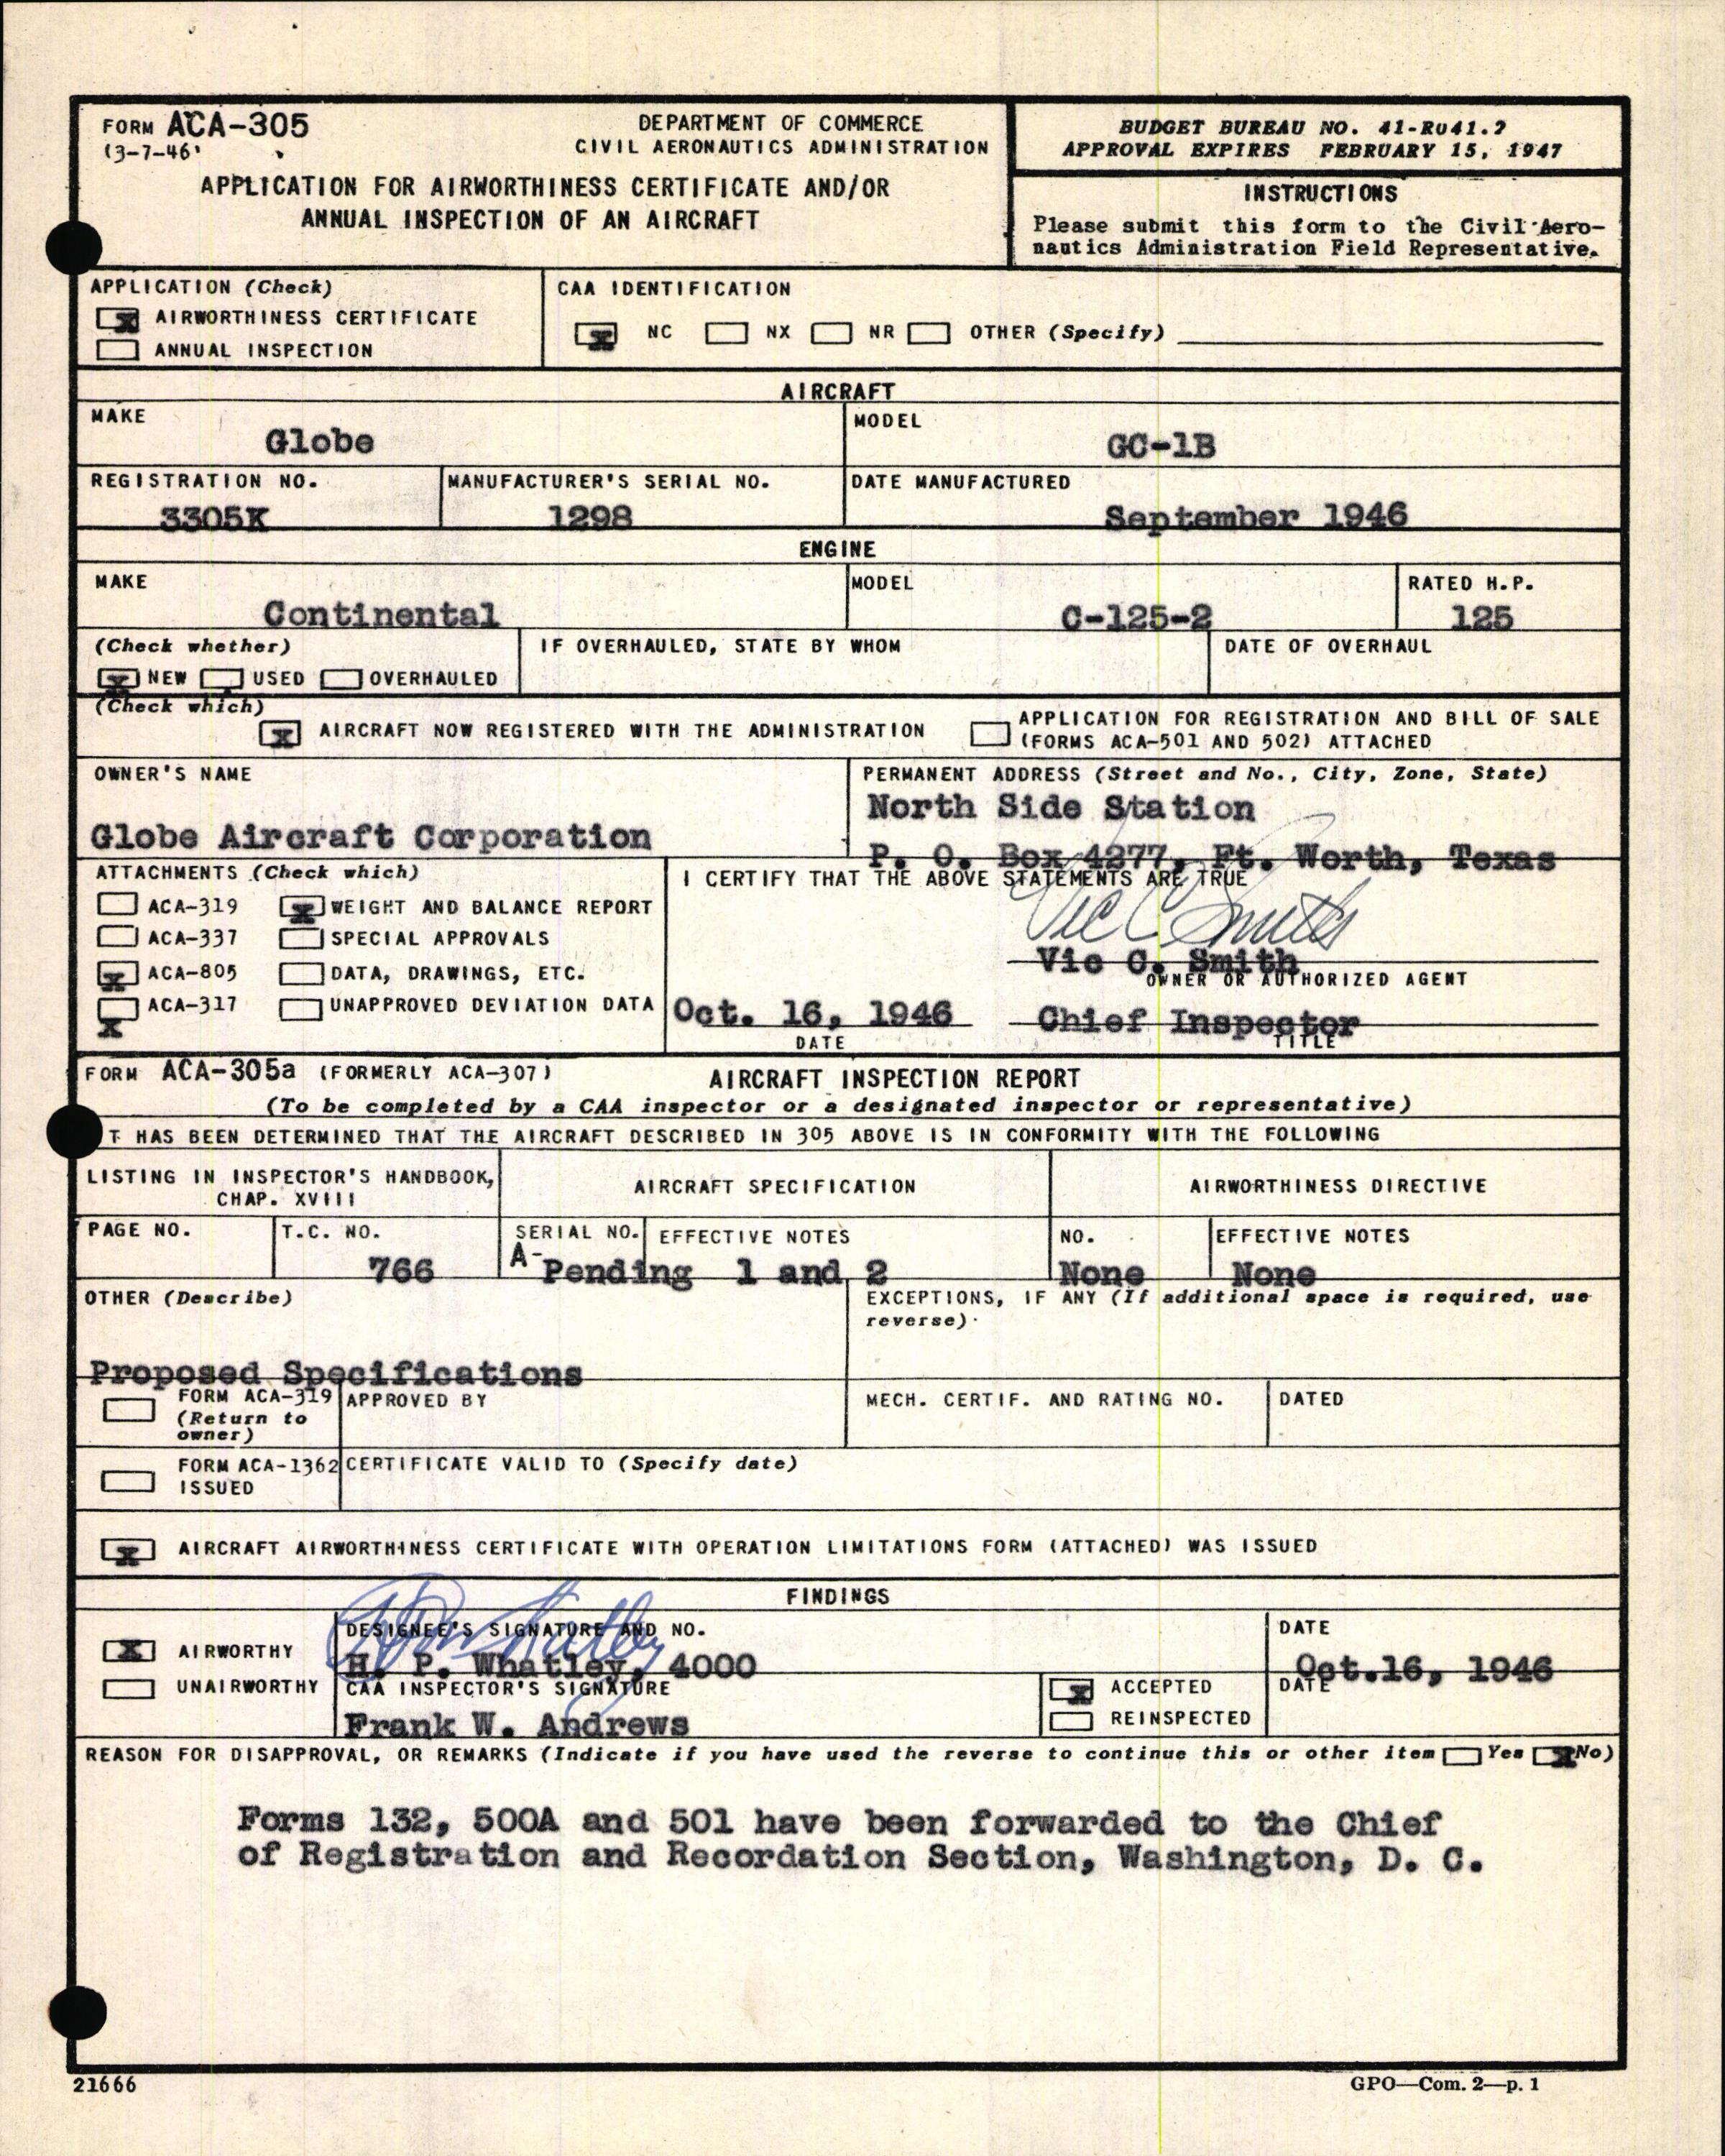 FORM ACA-305
(3-7-46)
DEPARTMENT OF COMMERCE
CIVIL AERONAUTICS ADMINISTRATION
APPLICATION FOR AIRWORTHINESS CERTIFICATE AND/OR
ANNUAL INSPECTION OF AN AIRCRAFT
BUDGET BUREAU NO. 41-R041.2
APPROVAL EXPIRES FEBRUARY 15, 1947
INSTRUCTIONS
Please submit this form to the Civil Aero-
nautics Administration Field Representative.
APPLICATION (Check)
X AIRWORTHINESS CERTIFICATE
ANNUAL INSPECTION
CAA IDENTIFICATION
X NC NX NR OTHER (Specify)
AIRCRAFT
MAKE
Globe
MODEL
GC-1B
REGISTRATION NO.
3305K
MANUFACTURER'S SERIAL NO.
1298
DATE MANUFACTURED
September 1946
ENGINE
MAKE
Continental
MODEL
C-125-2
RATED H.P.
125
(Check whether)
X NEW USED OVERHAULED
IF OVERHAULED, STATE BY WHOM
DATE OF OVERHAUL
(Check which)
X AIRCRAFT NOW REGISTERED WITH THE ADMINISTRATION
APPLICATION FOR REGISTRATION AND BILL OF SALE
(FORMS ACA-501 AND 502) ATTACHED
OWNER'S NAME
Globe Aircraft Corporation
PERMANENT ADDRESS (Street and No., City, Zone, State)
North Side Station
P. O. Box 4277, Ft. Worth, Texas
ATTACHMENTS (Check which)
ACA-319 X WEIGHT AND BALANCE REPORT
ACA-337 SPECIAL APPROVALS
X ACA-805 DATA, DRAWINGS, ETC.
X ACA-317 UNAPPROVED DEVIATION DATA
I CERTIFY THAT THE ABOVE STATEMENTS ARE TRUE
Vic C Smith
Vic C. Smith
OWNER OR AUTHORIZED AGENT
Oct. 16, 1946
DATE
Chief Inspector
TITLE
FORM ACA-305a (FORMERLY ACA-307)
AIRCRAFT INSPECTION REPORT
(To be completed by a CAA inspector or a designated inspector or representative)
T HAS BEEN DETERMINED THAT THE AIRCRAFT DESCRIBED IN 305 ABOVE IS IN CONFORMITY WITH THE FOLLOWING
LISTING IN INSPECTOR'S HANDBOOK,
CHAP. XVIII
AIRCRAFT SPECIFICATION
AIRWORTHINESS DIRECTIVE
PAGE NO.
T.C. NO.
766
SERIAL NO.
A- Pending
EFFECTIVE NOTES
1 and 2
NO.
None
EFFECTIVE NOTES
None
OTHER (Describe)
Proposed Specifications
EXCEPTIONS, IF ANY (If additional space is required, use
reverse)
FORM ACA-319
(Return to
owner)
APPROVED BY
MECH. CERTIF. AND RATING NO.
DATED
FORM ACA-1362
ISSUED
CERTIFICATE VALID TO (Specify date)
X AIRCRAFT AIRWORTHINESS CERTIFICATE WITH OPERATION LIMITATIONS FORM (ATTACHED) WAS ISSUED
FINDINGS
X AIRWORTHY
UNAIRWORTHY
DESIGNEE'S SIGNATURE AND NO.
H. P. Whatley, 4000
DATE
Oct.16, 1946
CAA INSPECTOR'S SIGNATURE
Frank W. Andrews
X ACCEPTED
REINSPECTED
DATE
REASON FOR DISAPPROVAL, OR REMARKS (Indicate if you have used the reverse to continue this or other item Yes X No)
Forms 132, 500A and 501 have been forwarded to the Chief
of Registration and Recordation Section, Washington, D. C.
21666
GPO—Com. 2—p. 1